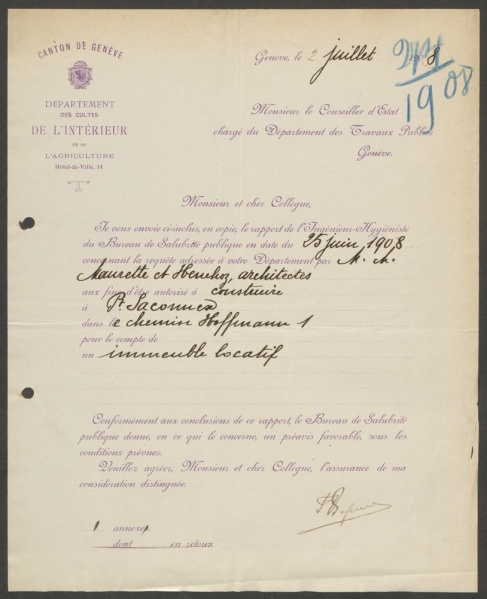 CANTON DE GENÈVE
DÉPARTEMENT
DES CULTES
DE L'INTÉRIEUR
ET DE
L'AGRICULTURE
Hôtel-de-Ville, 14
Genève, le 2 juillet 1908
274
1908
Monsieur le Conseiller d'Etat
chargé du Département des Travaux Publics
Genève.
Monsieur et cher Collègue,
Je vous envoie ci-inclus, en copie, le rapport de l'Ingénieur-Hygiéniste
du Bureau de Salubrité publique en date du 25 juin, 1908
concernant la requête adressée à votre Département par M. M.
Maurette et Henchoz, architectes
aux fins d'être autorisé à construire
à Pt. Saconnex
dans le chemin Hoffmann 1
pour le compte de
un immeuble locatif
Conformément aux conclusions de ce rapport, le Bureau de Salubrité
publique donne, en ce qui le concerne, un préavis favorable, sous les
conditions prévues.
Veuillez agréer, Monsieur et cher Collègue, l'assurance de ma
considération distinguée.
1 annexe
dont en retour